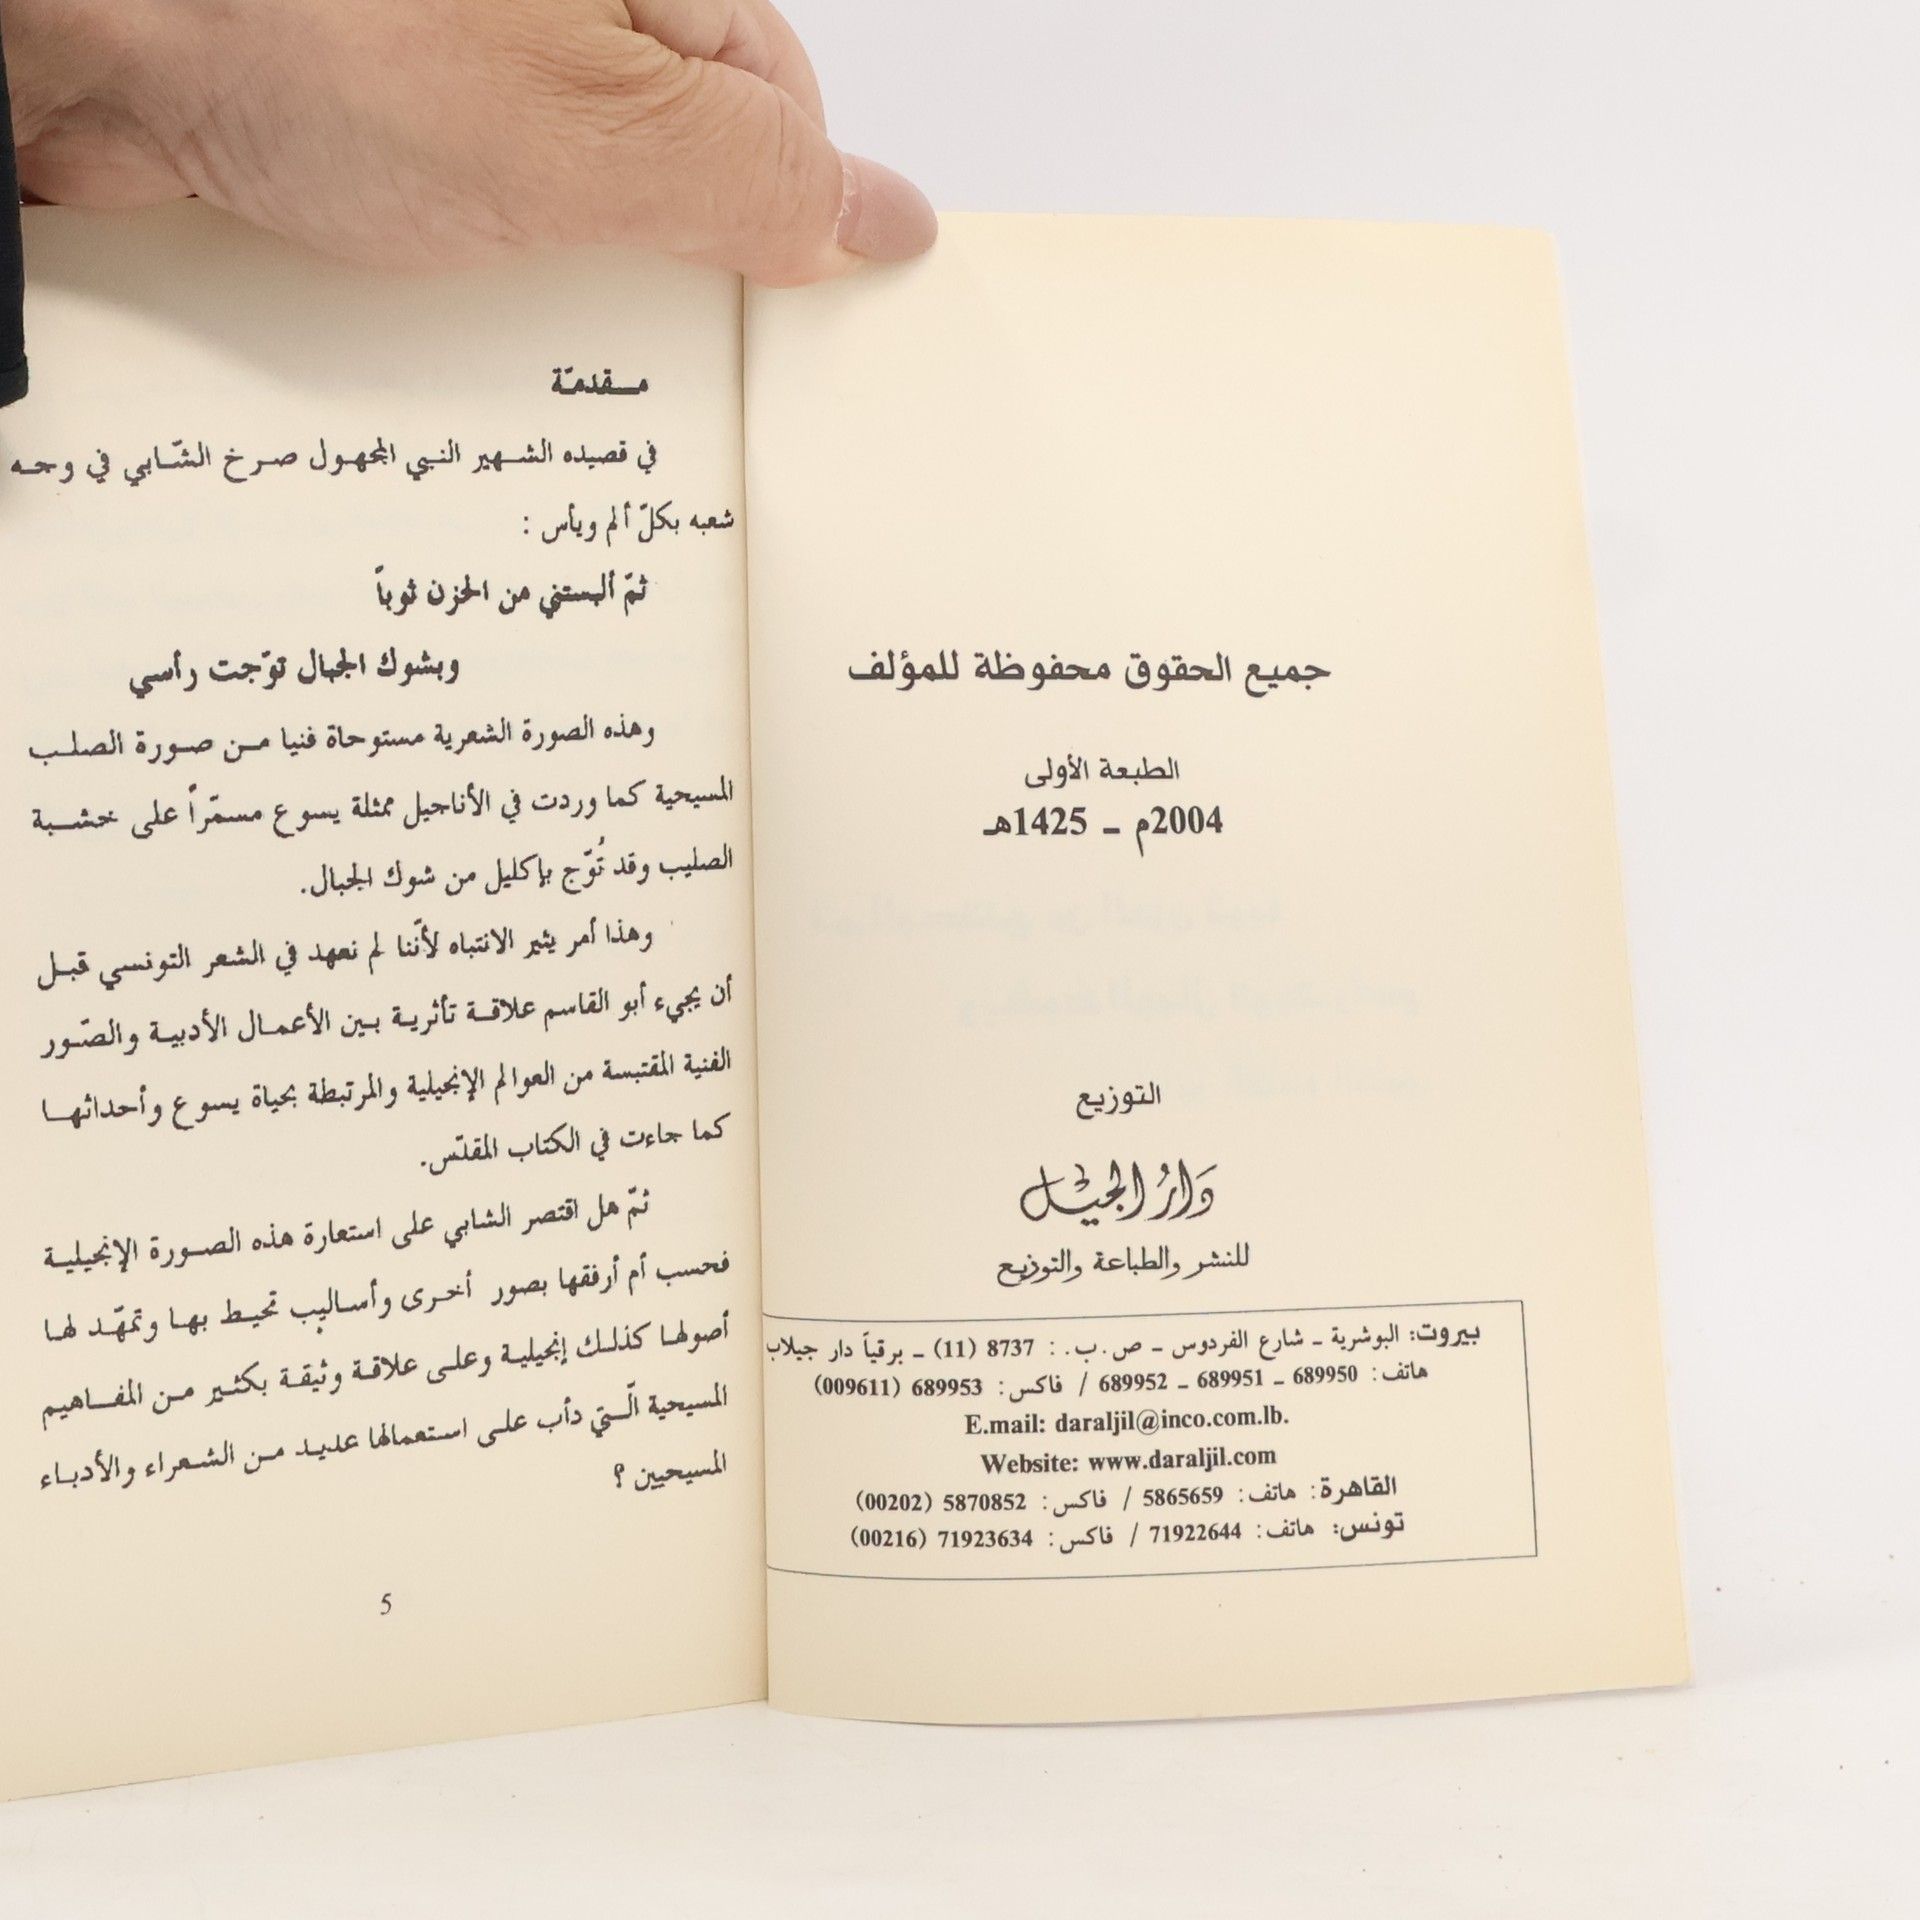 جميع الحقوق محفوظة للمؤلف
الطبعة الأولى
2004م ـ 1425هـ
التوزيع
دار الجيل
للنشر والطباعة والتوزيع
بيروت: البوشرية ـ شارع الفردوس ـ ص.ب.: 8737 (11) ـ برقياً دار جيلاب
هاتف: 689950 ـ 689951 ـ 689952 / فاكس: 689953 (009611)
E.mail: daraljil@inco.com.lb.
Website: www.daraljil.com
القاهرة: هاتف: 5865659 / فاكس: 5870852 (00202)
تونس: هاتف: 71922644 / فاكس: 71923634 (00216)
مـقدمـّة
في قصيده الشهير النبي المجهول صرخ الشّابي في وجه
شعبه بكلّ ألم ويأس :
ثمّ ألبستني من الحزن ثوباً
وبشوك الجبال توّجت رأسي
وهذه الصورة الشعرية مستوحاة فنيا من صورة الصلب
المسيحية كما وردت في الأناجيل ممثلة يسوع مسمّراً على خشبة
الصليب وقد تُوّج بإكليل من شوك الجبال.
وهذا أمر يثير الانتباه لأنّنا لم نعهد في الشعر التونسي قبل
أن يجيء أبو القاسم علاقة تأثرية بين الأعمال الأدبية والصّور
الفنية المقتبسة من العوالم الإنجيلية والمرتبطة بحياة يسوع وأحداثها
كما جاءت في الكتاب المقدّس.
ثمّ هل اقتصر الشابي على استعارة هذه الصورة الإنجيلية
فحسب أم أرفقها بصور أخرى وأساليب تحيط بها وتمهّد لها
أصولها كذلك إنجيلية وعلى علاقة وثيقة بكثير من المفاهيم
المسيحية الّتي دأب على استعمالها عديد من الشعراء والأدباء
المسيحيين ؟
5